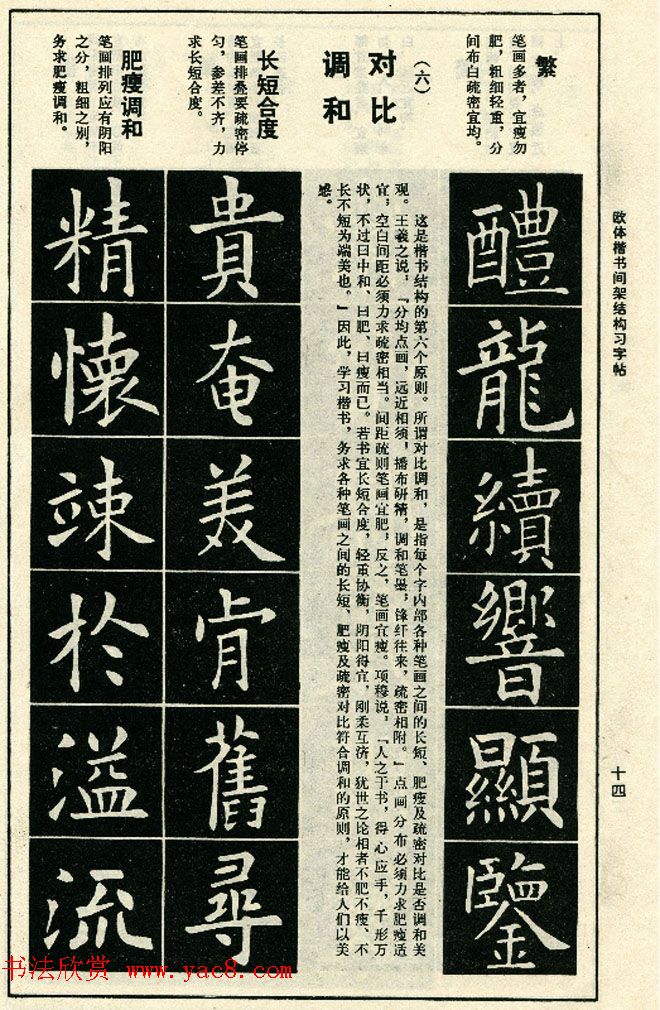 欧体楷书间架结构习字帖
十四
繁
笔画多者，宜瘦勿
肥，粗细轻重，分
间布白疏密宜均。
醴
龍
續
響
顯
鑒
（六）
对比
调和
这是楷书结构的第六个原则。所谓对比调和，是指每个字内部各种笔画之间的长短、肥瘦及疏密对比是否调和美
观。王羲之说，『分均点画，远近相须，播布研精，调和笔墨，锋纤往来，疏密相附。』点画分布必须力求肥瘦适
宜，空白间距必须力求疏密相当。间距疏则笔画宜肥，反之，笔画宜瘦。项穆说，『人之于书，得心应手，千形万
状，不过曰中和、曰肥、曰瘦而已。若书宜长短合度，轻重协衡，阴阳得宜，刚柔互济，犹世之论相者不肥不瘦、不
长不短为端美也。』因此，学习楷书，务求各种笔画之间的长短、肥瘦及疏密对比符合调和的原则，才能给人们以美
感。
长短合度
笔画排叠要疏密停
匀，参差不齐，力
求长短合度。
貴
奄
美
肯
舊
尋
肥瘦调和
笔画排列应有阴阳
之分，粗细之别，
务求肥瘦调和。
精
懷
竦
於
溢
流
书法欣赏 www.yac8.com